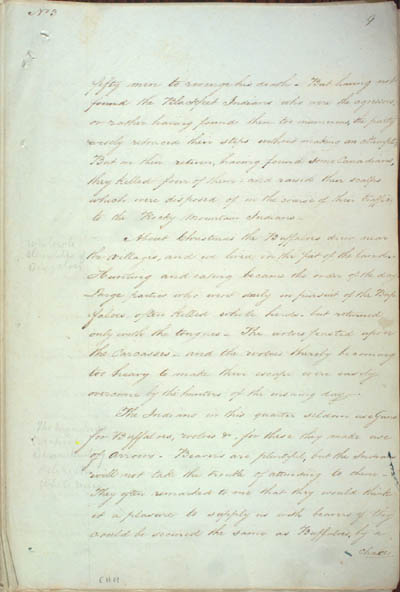 No 3
9
fifty men to revenge his death - But having not
found the Blackfeet Indians who were the agressors,
or rather having found them too numerous, the party
wisely retraced their steps without making an attempt.
But on their return, having found some Canadians,
they killed four of them: and raised their scalps
which were disposed of in the course of their traffic
to the Rocky Mountain Indians -
About Christmas the Buffaloes drew near
the villages, and we lived on the fat of the land -
Hunting and eating became the order of the day
Large parties who went daily in pursuit of the Buf
faloes, often killed whole herds. but returned
only with the tongues - The wolves feasted upon
the carcasses - and the wolves thereby becoming
too heavy to make their escape were easily
overcome by the hunters of the ensuing day -
The Indians in this quarter seldom use Guns
for Buffaloes, wolves &. for these they make use
of arrows - Beavers are plentiful, but the Indians
will not take the trouble of attending to them -
They often remarked to me that they would think
it a pleasure to supply us with beavers if they
could be secured the same as Buffaloes, by a
chase